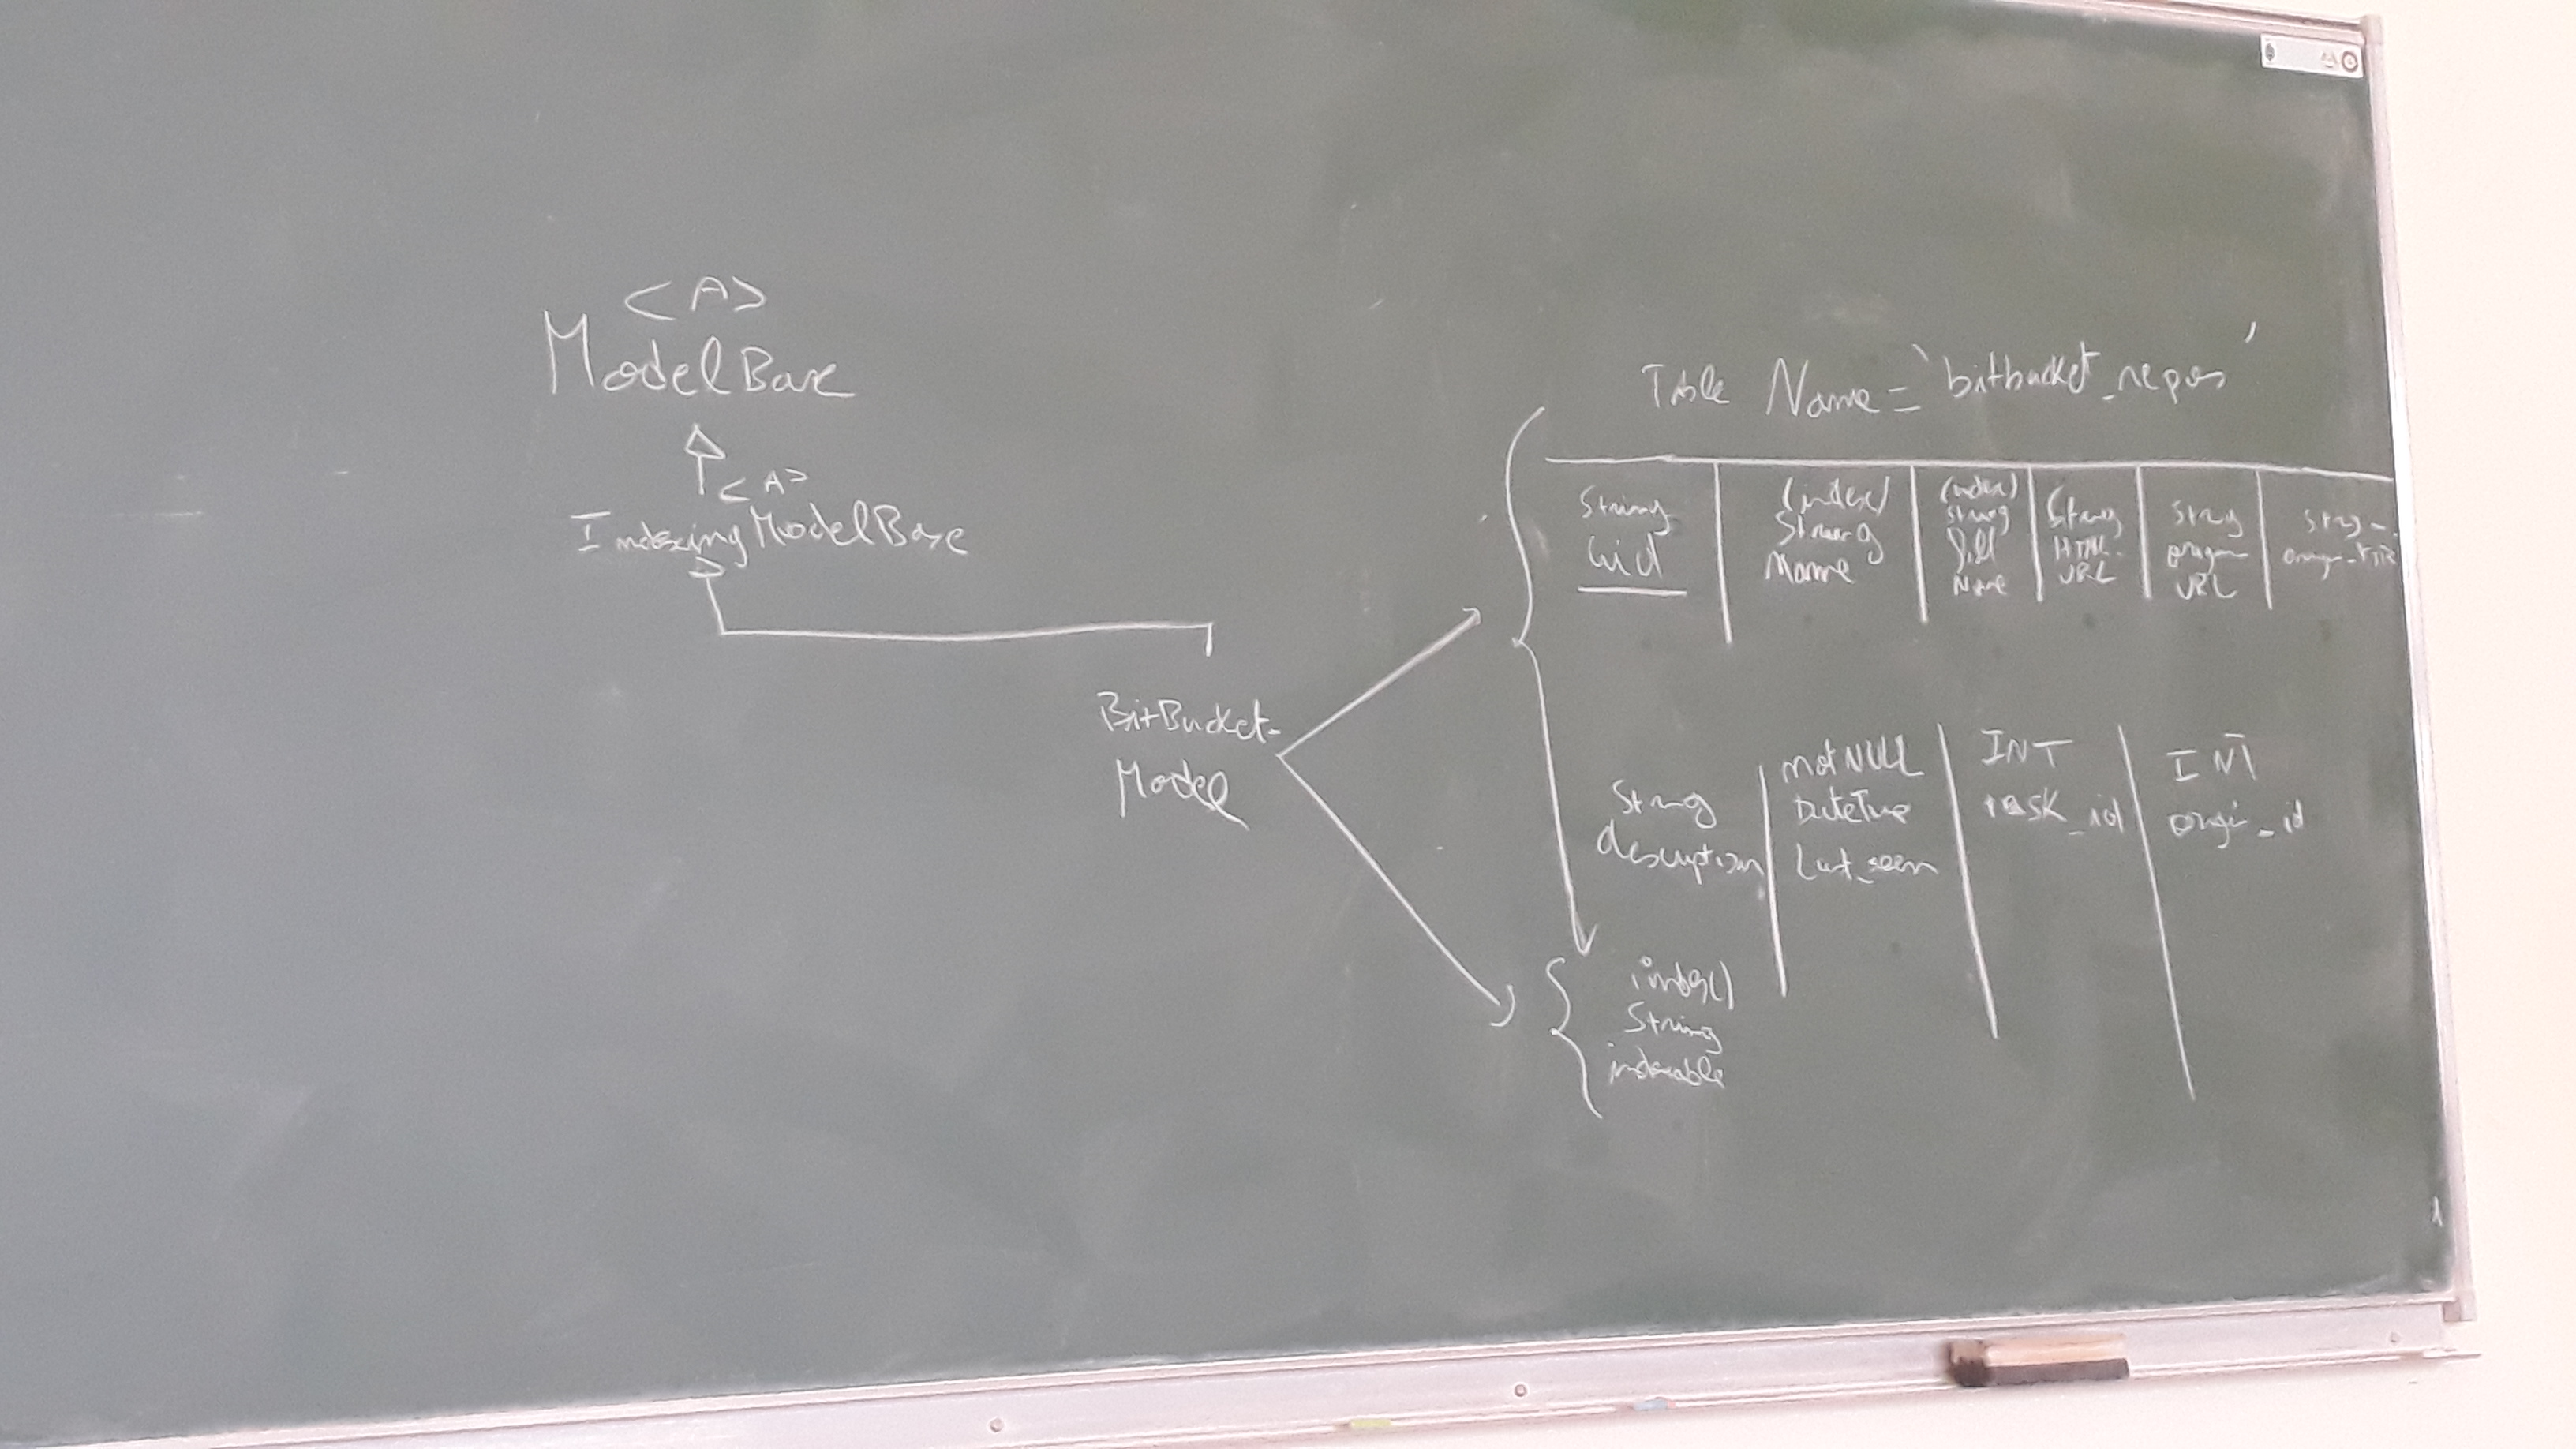 <A>
ModelBase
<A>
IndexingModelBase
BitBucket-
Model
Table Name = 'bitbucket_repos'
String
uid
(index)
String
Name
(index)
String
full
Name
String
HTML-
URL
String
origin
URL
String
description
not NULL
DateTime
Last_seen
INT
task_id
INT
origin_id
String
indexable